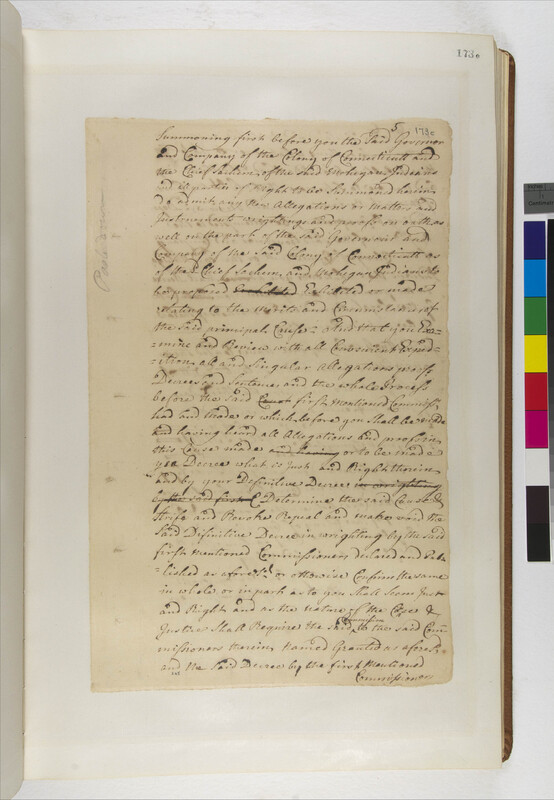 173e
5
173c
Summoning first before you the Said Governor
and Company of the Colony of Connecticutt and
the Chief Sachem of the said Mohegan Indians
and
to admit any New Allegations or Matter and
Instruments Wrightings and proofs on oath as
well on the part of the said Governour and
Company of the said Colony of Connecticutt as
of the Chief Sachem and Mohegan Indians to
be proposed Exhibited Exhibited or made
relating to the Merits and Circumstances of
the said principal Cause and that you Exa-
-mine and Review with all Convenient Exped-
-ition all and Singular Allegations proofs
Decrees and Sentence and the whole Process
before the Said Court first Mentioned Commiss.
had and made or which before you Shall be made
and having heard all Allegations and proofs in
this Cause made and having or to be made
you Decree what is just and Right therein
and by your Definitive Decree in wrighting
said first Determine the said Cause &
Strife and Revoke Repeal and make void the
said Difinitive Decree in wrighting by the said
first Mentioned Commissioners declared and Pub-
-lished as aforesd. or otherwise Confirm the same
in whole or in part as to you Shall Seem Just
and Right and as the Nature of the Case &
Justice Shall Require the Said to the said Com-
missioners therein Named Granted as afores.
and the Said Decree by the first Mentioned
Commissioners